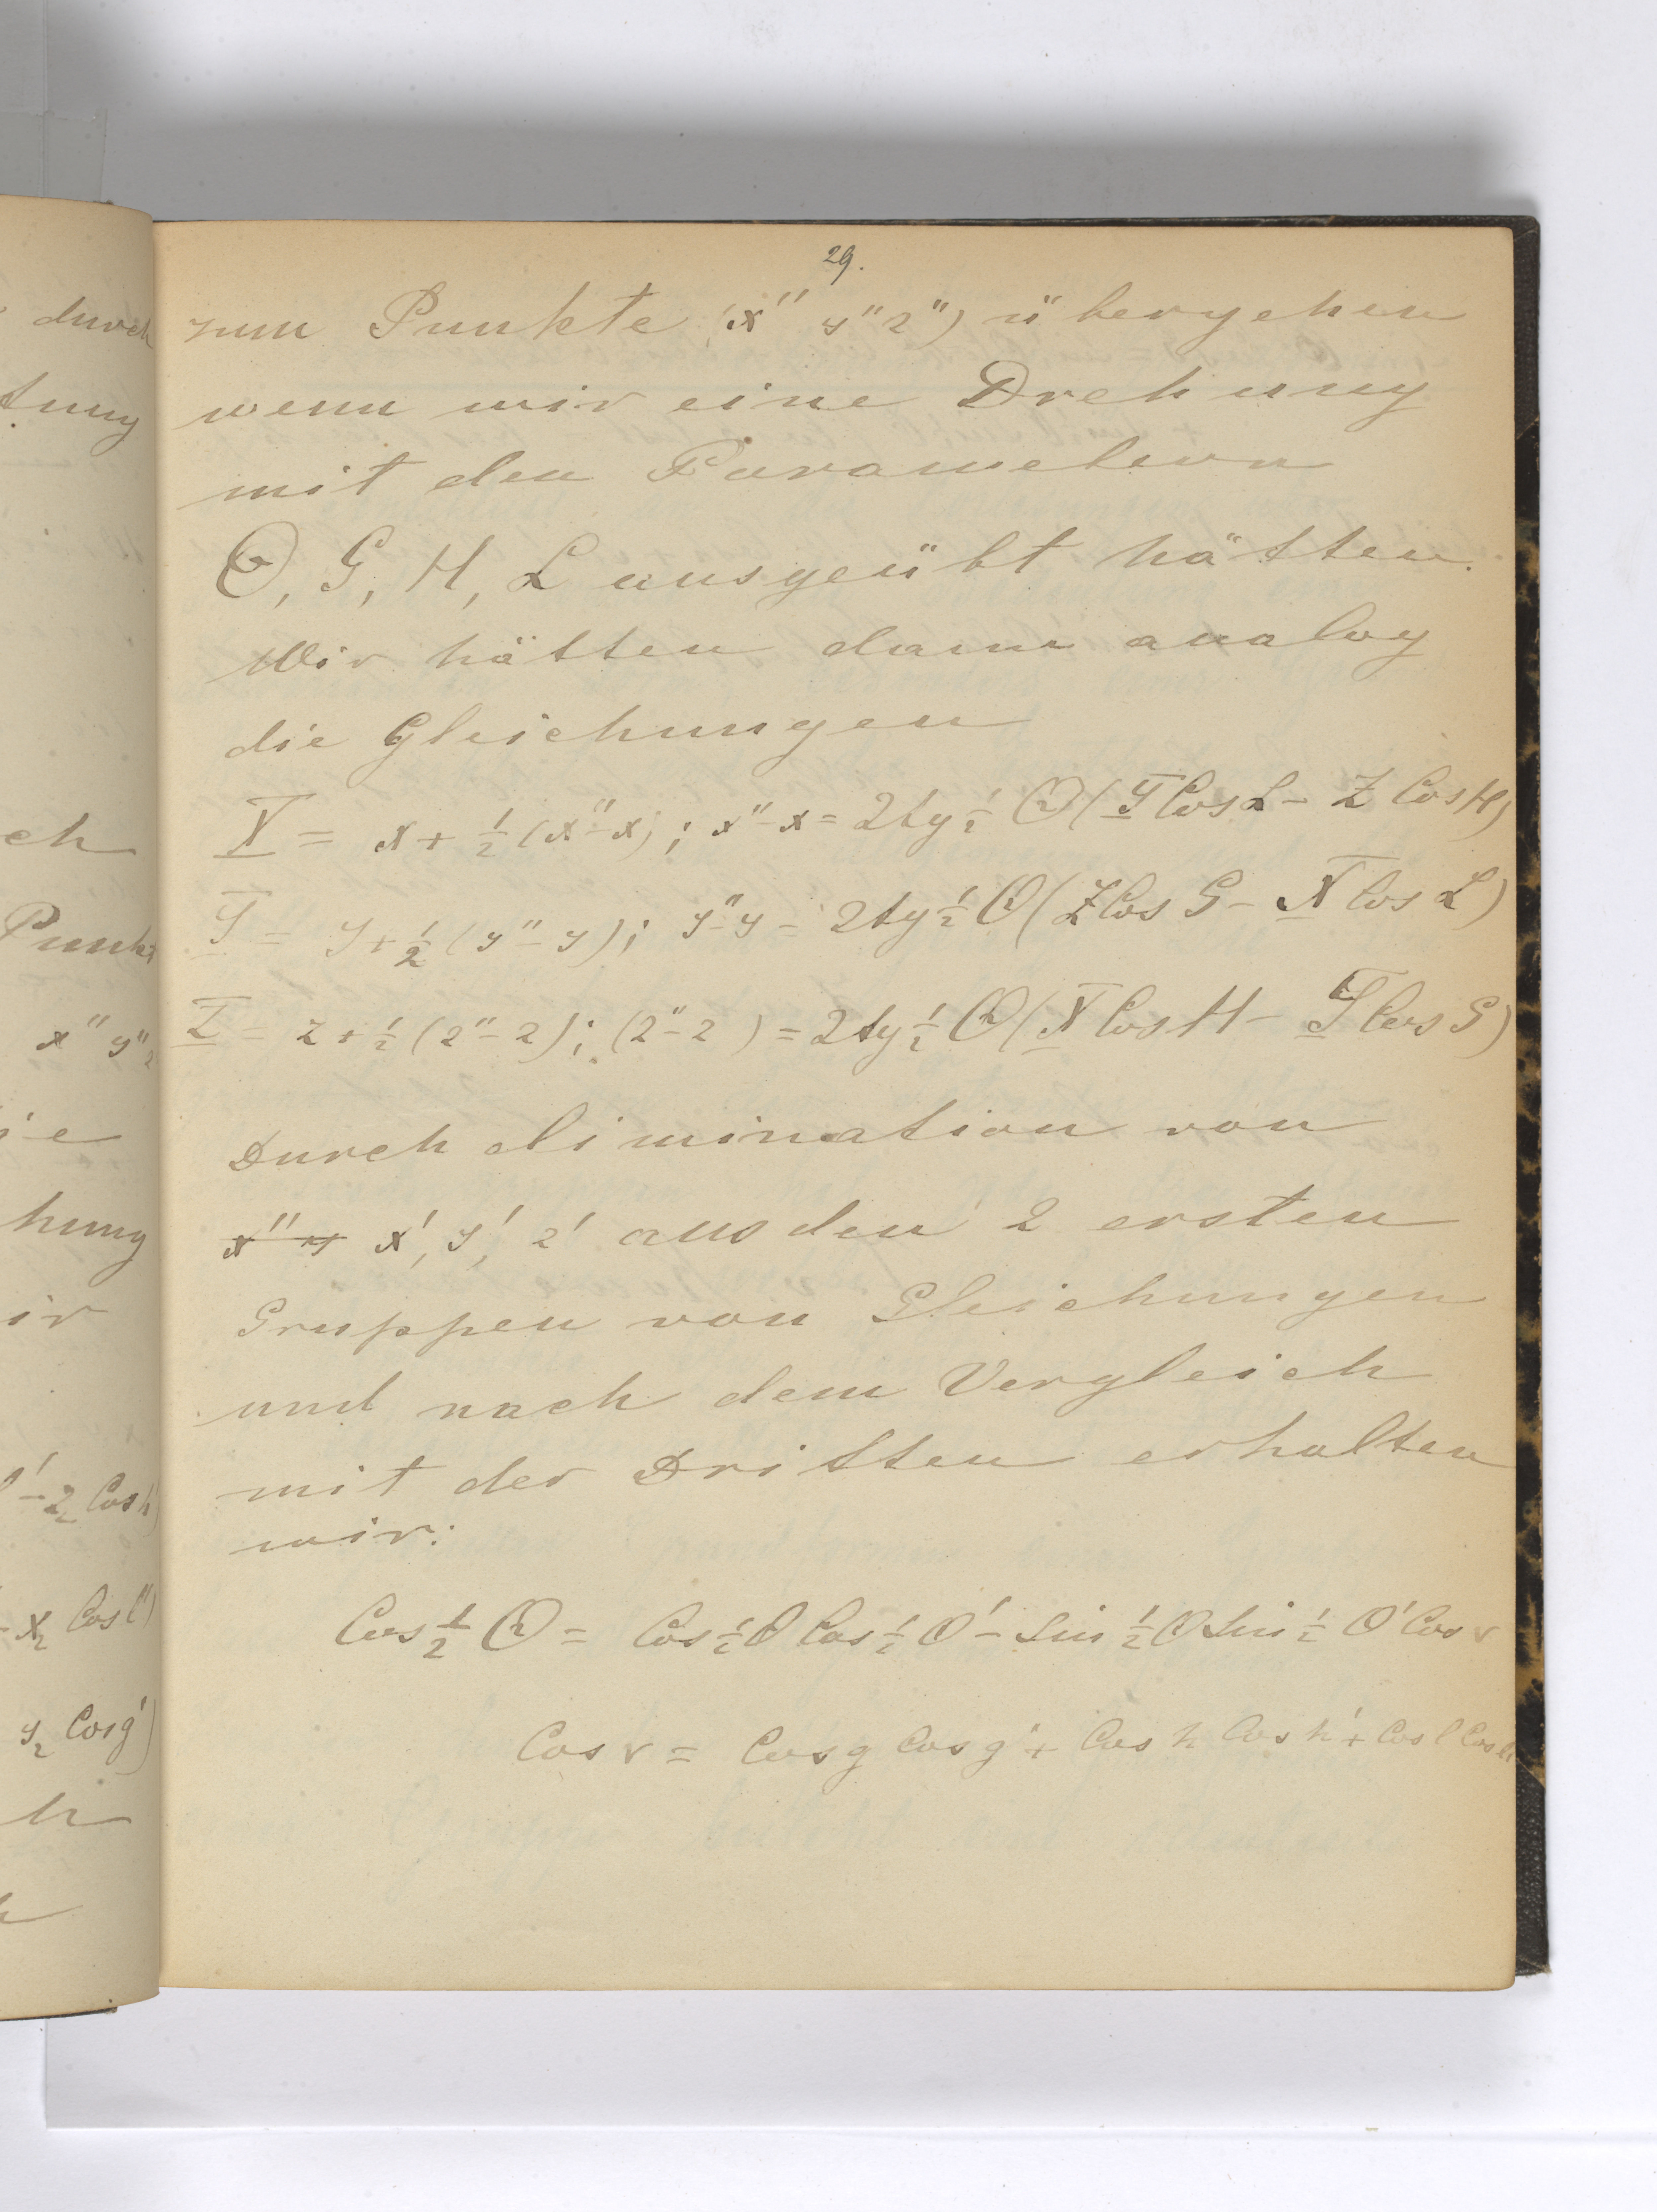 29.
zum Punkte (x'' y'' z'') übergehen
wenn wir eine Drehung
mit den Parametern
Θ, G, H, L ausgeübt hätten.
Wir hätten dann analog
die Gleichungen
X = x + 1/2 (x''-x); x''-x = 2tg 1/2 Θ (Y Cos L - Z Cos H)
Y = y + 1/2 (y''-y); y''-y = 2tg 1/2 Θ (Z Cos G - X Cos L)
Z = z + 1/2 (z''-z); (z''-z) = 2tg 1/2 Θ (X Cos H - Y Cos G)
Durch elimination von
x'' y x', y', z' aus den 2 ersten
Gruppen von Gleichungen
und nach dem Vergleich
mit der Dritten erhalten
wir:
Cos 1/2 Θ = Cos 1/2 θ Cos 1/2 θ' - Sin 1/2 θ Sin 1/2 θ' Cos v
Cos v = Cos g Cos g' + Cos h Cos h' + Cos l Cos l'
durch
tung
ch
Punkt
x'' y'' z
ie
hung
ir
l' - z₂ Cos h'
- x₂ Cos l')
y₂ Cos g')
h